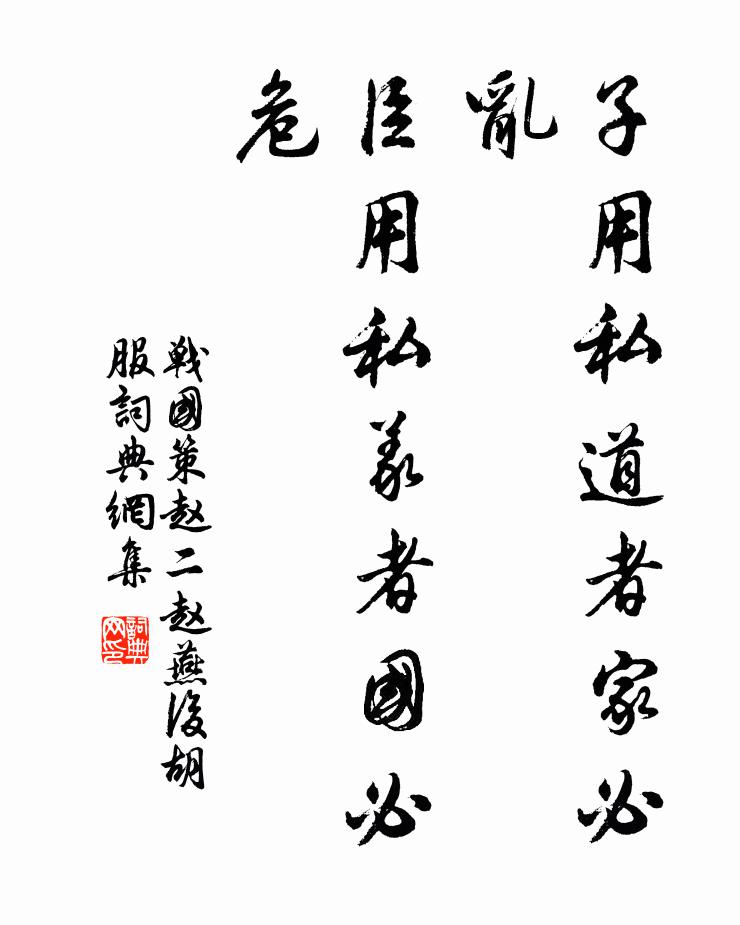 子用私道者家必
亂
臣用私義者國必
危
戰國策赵二赵燕後胡
服詞典網集
詞典
网印